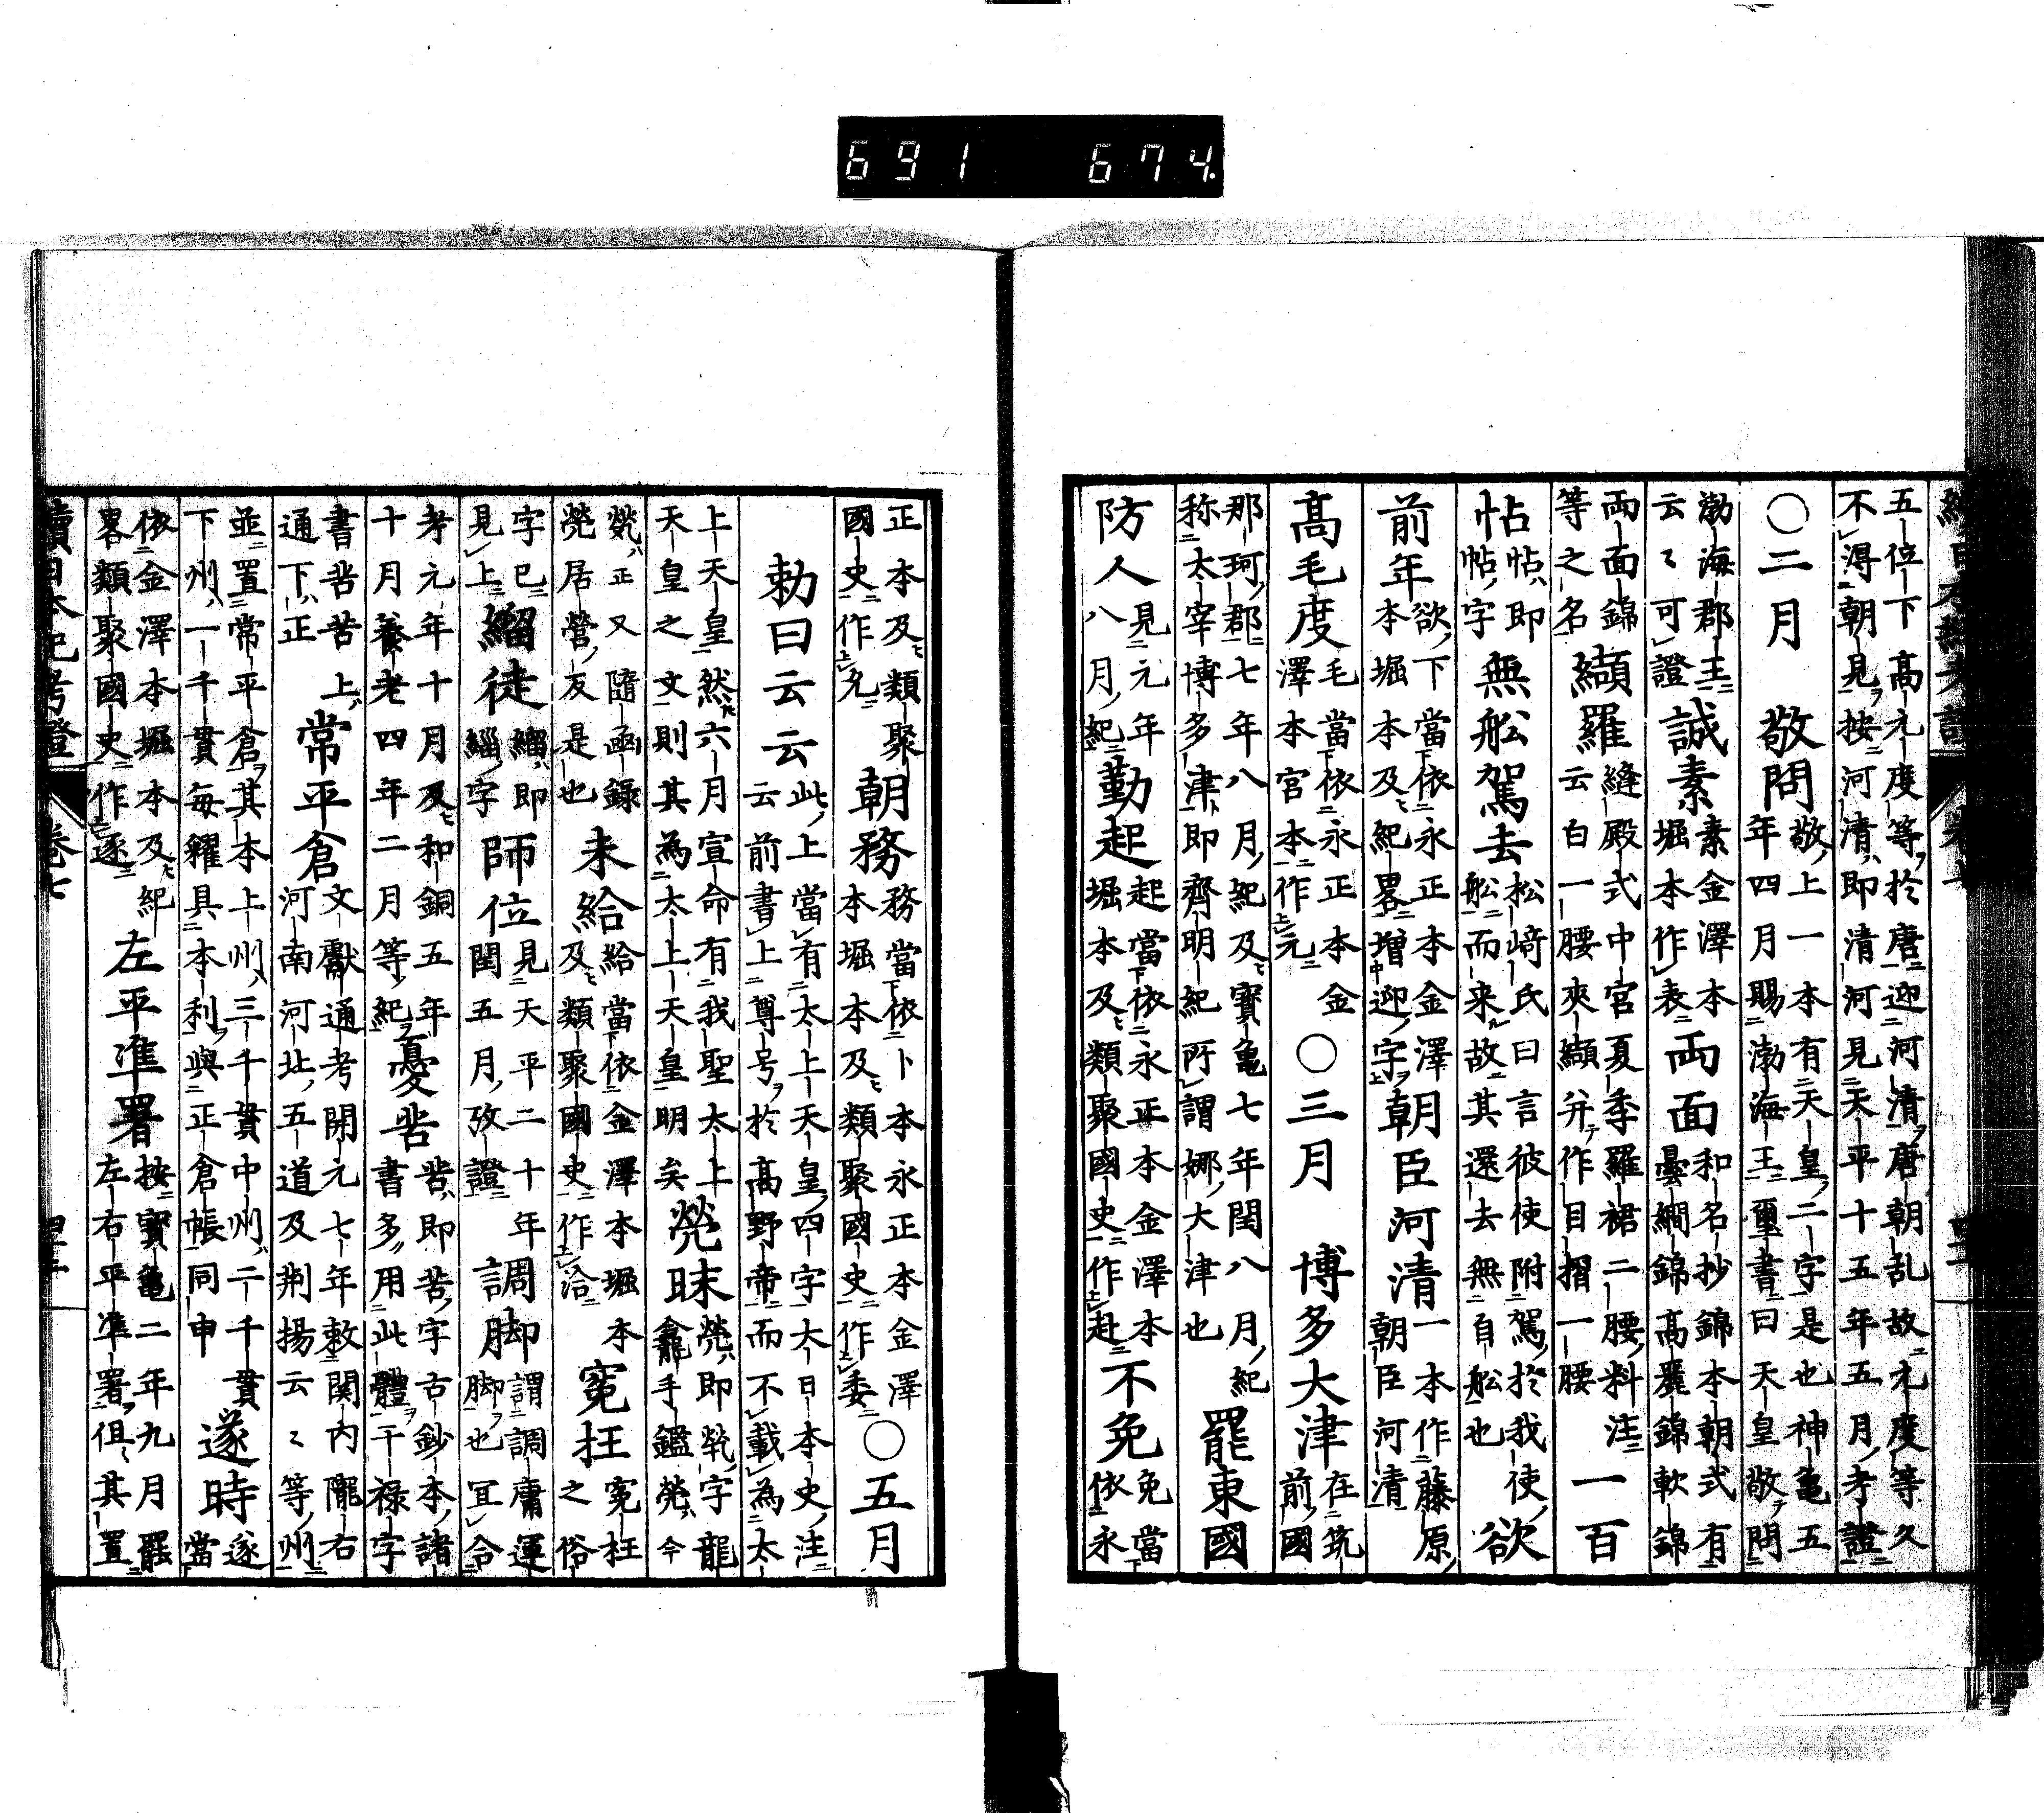 五位下高元度等於唐迎河清唐朝乱故元度等久
不得朝見按河清即清河見天平十五年五月考證
〇二月　敬問敬上一本有天皇二字是也神亀五年四月賜渤海王璽書曰天皇敬問
渤海郡王云々可證誠素素金澤本堀本作表両面和名抄錦本朝式有暈繝錦高麗錦軟錦
両面錦等之名纈羅縫殿式中宮夏季羅裙二腰料洼云白一腰夾纈弁作目摺一腰一百
帖帖即帖字無舩駕去松﨑氏曰言彼使附駕於我使舩而来故其還去無自舩也欲
前年欲下當依永正本金澤本堀本及紀畧増迎字朝臣河清一本作藤原朝臣河清
高毛度毛當依永正本金澤本本官本作元〇三月　博多大津在筑前國
那珂郡七年八月紀及寶亀七年閏八月紀称太宰博多津即齊明紀所謂娜大津也罷東國
防人見元年八月紀勤起起當依永正本金澤本堀本及類聚國史作赴不免免當依永
正本及類聚國史作充朝務務當依卜本永正本金澤本堀本及類聚國史作委〇五月
勅曰云云此上當有太上天皇四字大日本史洼云前書上尊号於高野帝而不載為太
上天皇然六月宣命有我聖太上天皇之文則其為太上天皇明矣煢眜煢即㷀字龍龕手鑑煢今
㷀正又隨函録煢居營反是也未給給當依金澤本堀本及類聚國史作洽寃枉寃枉之俗
字已見上緇徒緇即緇字師位見天平二十年閏五月攷證調脚謂調庸運脚也冝合
考元年十月及和銅五年十月養老四年二月等紀憂苦苦即苦字古鈔本諸書多用此體干禄字
書苦苦上通下正常平倉文獻通考開元七年敕関内隴右河南河北五道及荆揚云々等州
並置常平倉其本上州三千貫中州二千貫下州一千貫毎糴具本利與正倉帳同申遂時遂當
依金澤本堀本及紀畧類聚國史作逐左平準署按寶亀二年九月罷左右平準署但其置
續日本紀考證　卷七